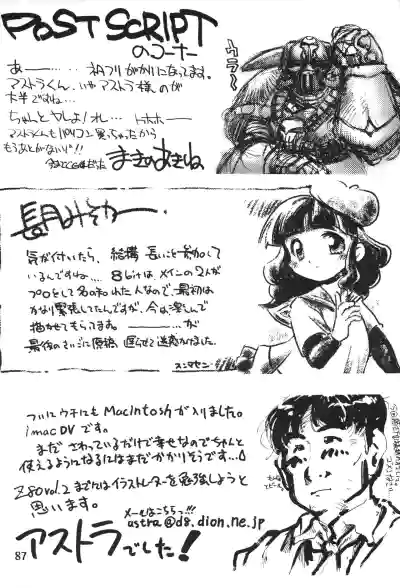 POST SCRIPT
のコーナー
ウララ〜
あー………、ネコフリがかりになってます。
マストラくん、いやアストラ様のが
大半ですね…
ちゃんとヤレよ!オレ… トホホー
マストラくんもパソコン買っちゃったから
もうあとがないゾ!!
まきのあきね
長月みそかー
気が付いたら、結構長いこと参加して
いるんですね… 8bitは、メインの2人が
プロとして名の知れた人なので、最初は
かなり緊張してたんですが、今は楽しんで
描かせてもらってます。ーーーが
最後のさいごに原稿遅らせて迷惑かけました。
スンマセン
ついにウチにもMacIntoshが入りました。
imac DVです。
まださわっているだけで幸せなのでちゃんと
使えるようになるにはまだかかりそうです…
Z80 vol.2までにはイラストレーターを勉強しようと
思います。
メールはこちらっ!!
astra@d8.dion.ne.jp
アストラでした!
87